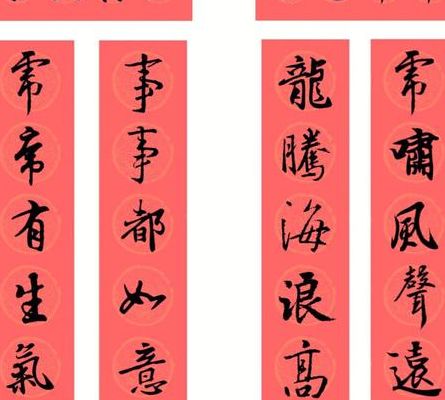 虎嘯風聲遠
龍騰海浪高
事事都如意
虎虎有生氣